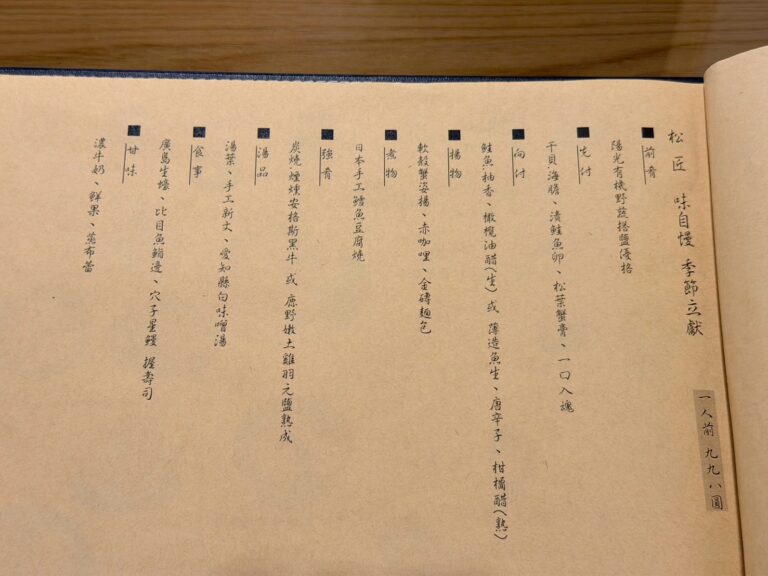 松匠　味自慢 季節立獻
一人前 九九八圓
前肴
陽光有機野蔬搭鹽優格
先付
干貝海膽、漬鮭魚卵、松葉蟹膏、一口入魂
向付
鮭魚柚香、橄欖油醋(生) 或 薄造魚生、唐辛子、柑橘醋(熟)
揚物
軟殼蟹姿揚、赤咖哩、金磚麵包
煮物
日本手工鱈魚豆腐燒
強肴
炭燒 煙燻安格斯黑牛 或 鹿野嫩土雞羽元鹽熟成
湯品
湯葉、手工新丈、愛知縣白味噌湯
食事
廣島生蠔、比目魚鰭邊、穴子星鰻 握壽司
甘味
濃牛奶、鮮果、蕙布蕾